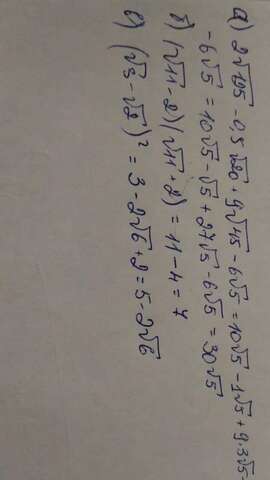 а) 2√125 - 0,5√20 + 9√45 - 6√5 = 10√5 - 1√5 + 9·3√5 -
- 6√5 = 10√5 - √5 + 27√5 - 6√5 = 30√5
б) (√11 - 2)(√11 + 2) = 11 - 4 = 7
в) (√3 - √2)² = 3 - 2√6 + 2 = 5 - 2√6